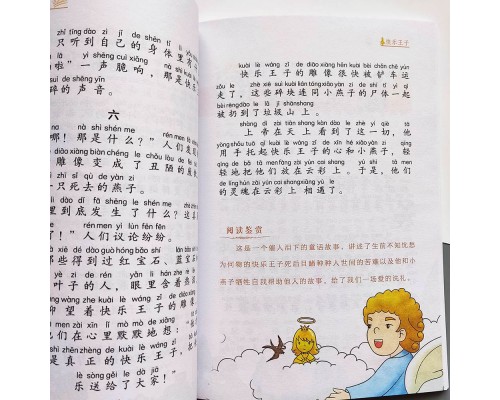 zhǐ tīng dào zì jǐ de shēn tǐ
只听到自己的身体里有
yì shēng cuì xiǎng
啦”一声脆响，那是快乐
suì de shēng yīn
碎的声音。
六
nà shì shén me
哪！那是什么？”人们发
diāo xiàng biàn chéng le chǒu lòu de
雕像变成了丑陋的
zhī sǐ qù de yàn zi
一只死去的燕子。
里到底发生了什么？这真
rén men yì lùn fēn fēn
！”人们议论纷纷。
xiē dé dào guò hóng bǎo shí
那些得到过红宝石、蓝宝石
yè zi de rén yǎn lǐ hán zhe rè
叶子的人，眼里含着热
wàng zhe kuài lè wáng zǐ de diāo
仰望着快乐王子的雕像
men zài xīn lǐ mò mò de xiǎng
们在心里默默地想：
shì zhēn zhèng de kuài lè wáng zǐ bǎ
是真正的快乐王子，把
lè sòng gěi le dà jiā
乐送给了大家！”
快乐王子
kuài lè wáng zǐ de diāo xiàng hěn kuài bèi chǎn chē yùn
快乐王子的雕像很快被铲车运
zǒu le zhè xiē suì kuài lián tóng xiǎo yàn zi de shī tǐ yì qǐ
走了，这些碎块连同小燕子的尸体一起
bèi rēng dào le lā jī shān shang
被扔到了垃圾山上。
shàng dì zài tiān shang kàn dào le zhè yí qiè tā
上帝在天上看到了这一切，他
yòng shǒu tuō qǐ kuài lè wáng zǐ de xīn hé xiǎo yàn zi qīng
用手托起快乐王子的心和小燕子，轻
qīng de bǎ tā men fàng zài yún cai shang yú shì tā men
轻地把他们放在云彩上。于是，他们
de líng hún zài yún cai shang xiāng yù le
的灵魂在云彩上相遇了。
阅读鉴赏
这是一个催人泪下的童话故事，讲述了生前不知忧愁
为何物的快乐王子死后目睹种种人世间的苦难以及他和小
燕子牺牲自我帮助他人的故事，给了我们一场爱的洗礼。